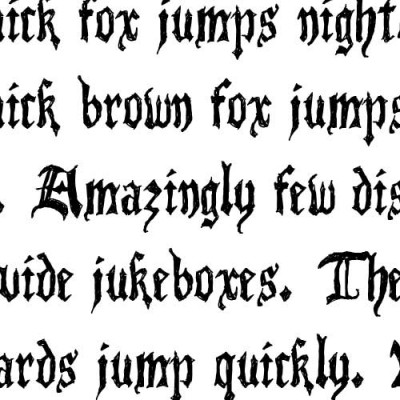 uick fox jumps night
uick brown fox jumps
. Amazingly few dis
wide jukeboxes. The
ards jump quickly.